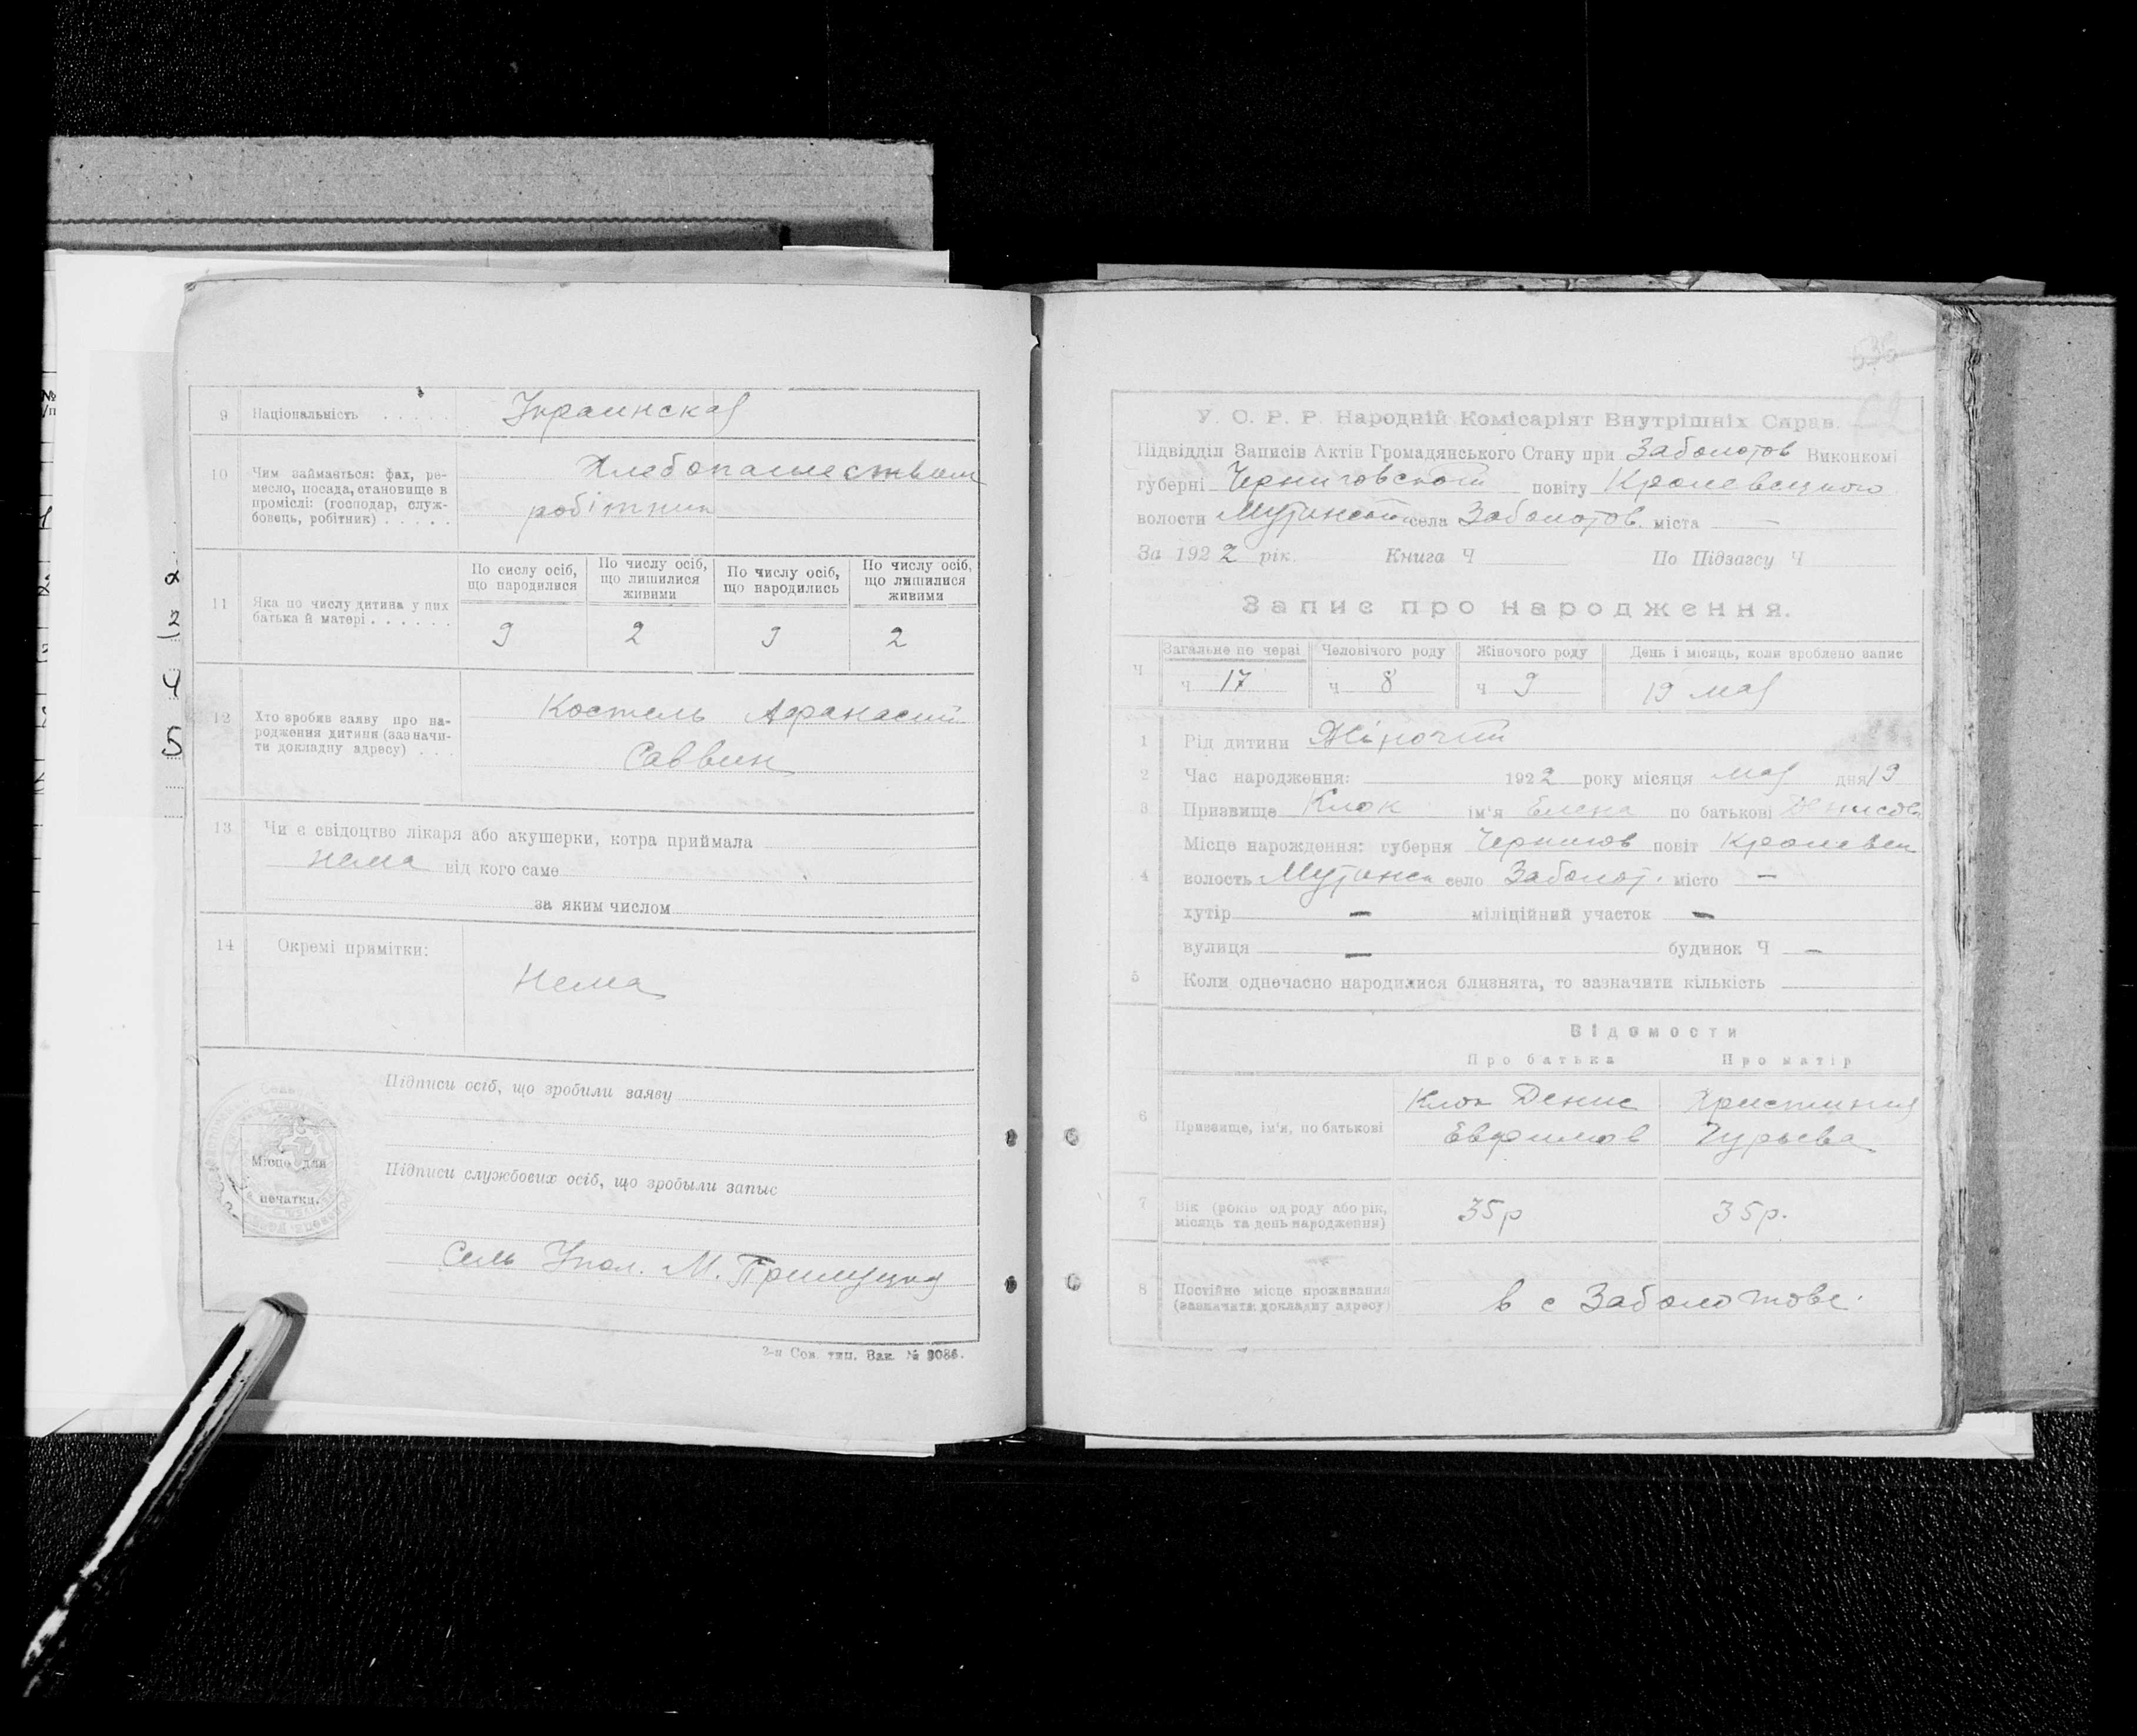 9 Національність Украинская
10 Чим займається: фах, ре- Хлебопашеством
месло, посада, становище в
проміслі: (господар, служ- робітник
бовець, робітник)
По сислу осіб, що народилися
По числу осіб, що лишилися живими
По числу осіб, що народились
По числу осіб, що лишилися живими
11 Яка по числу дитина у цих
батька й матері 9 2 9 2
12 Хто зробив заяву про на- Костель Афанасий
родження дитини (зазначи- Саввин
ти докладну адресу)
13 Чи є свідоцтво лікаря або акушерки, котра приймала
нема від кого саме
за яким числом
14 Окремі примітки:
Нема
Підписи осіб, що зробили заяву
Місце для
печатки.
Підписи службових осіб, що зробыли запыс
Сель Упол. М.
2-я Сов. тип. Зак. № 9086.
У. С. Р. Р. Народній Комісаріят Внутрішніх Справ.
Підвідділ Записів Актів Громадянського Стану при Заболотов Виконкомі
губерні Черниговской повіту Кролевецкого
волости Мутинской села Заболотов. міста —
За 1922 рік. Книга Ч По Підзагсу Ч
Запис про народження.
Ч Загальне по черзі Человічого роду Жіночого роду День і місяць, коли зроблено запис
ч 17 ч 8 ч 9 19 мая
1 Рід дитини Жіночий
2 Час народження: 1922 року місяця мая дня 19
3 Призвище Клок ім'я Елена по батькові Денисова
Місце нарождення: губерня Чернигов повіт Кролевец
4 волость Мутинск село Заболот. місто —
хутір — міліційний участок —
вулиця — будинок Ч —
5 Коли одночасно народилися близнята, то зазначити кількість
Відомости
Про батька Про матір
Клок Денис Христиния
6 Призвище, ім'я, по батькові Евфимов Гурьева
7 Вік (років од роду або рік, 35р 35р.
місяць та день народження)
8 Постійне місце проживання в с Заболотове.
(зазначати докладну адресу)